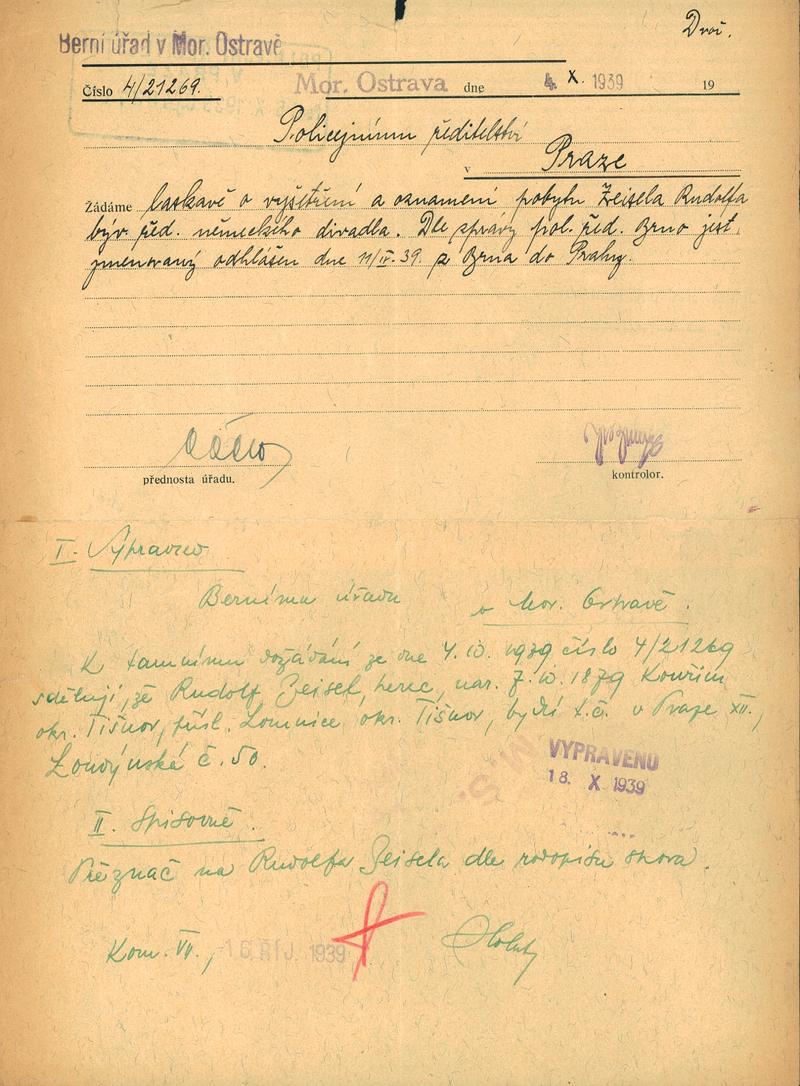 Dvoř.
Berní úřad v Mor. Ostravě
Číslo 4/21269. Mor. Ostrava dne 4. X. 1939 19
Policejnímu ředitelství
v Praze
Žádáme laskavě o vyšetření a oznamení pobytu Zeisela Rudolfa
býv. řed. německého divadla. Dle zprávy pol. řed. Brno jest
jmenovaný odhlášen dne 11/IV. 39. z Brna do Prahy.
přednosta úřadu. kontrolor.
I. Výpravně
Bernímu úřadu
v Mor. Ostravě.
K tamnímu dožádání ze dne 4.10. 1939 číslo 4/21269
sděluji, že Rudolf Zeisel, herec, nar. 7.10.1879 Kouřim
okr. Tišnov, přísl. Lomnice okr. Tišnov, bydlí t.č. v Praze XII.,
Londýnská č. 50.
VYPRAVENO
18. X 1939
II. Spisovně.
Přeznač na Rudolfa Zeisela dle rodopisu shora.
Kom. VII., 16. ŘÍJ. 1939